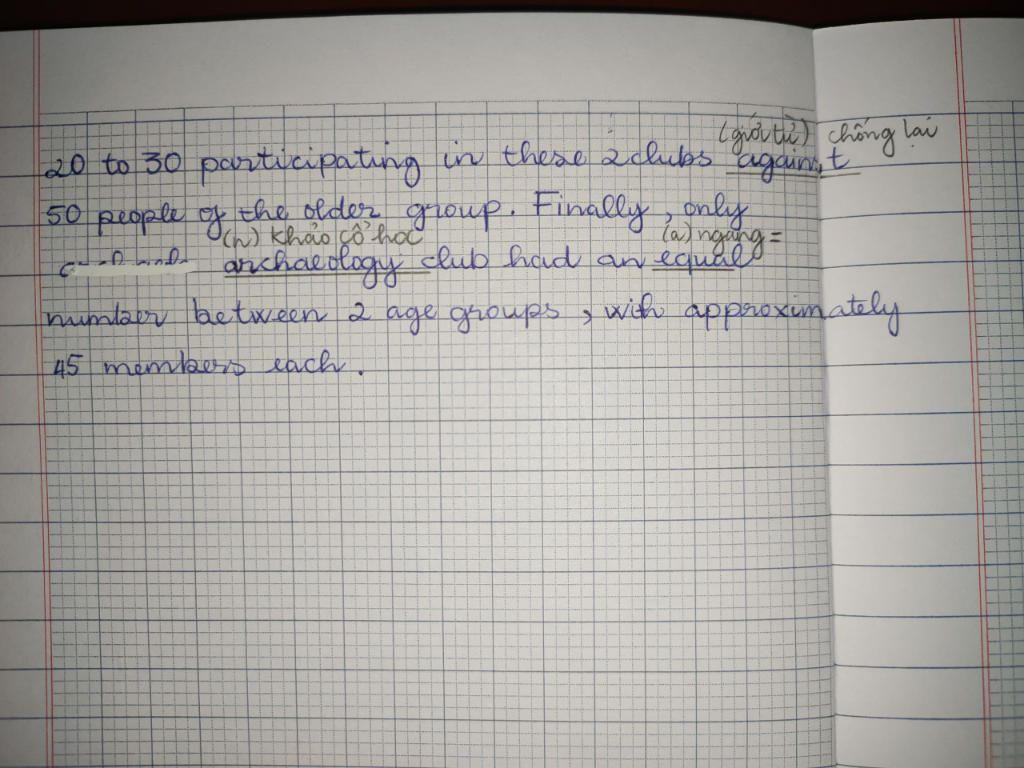 (giới từ) chống lại
20 to 30 participating in these 2 clubs against
50 people of the older group. Finally, only
(n) khảo cổ học (a) ngang =
archaeology club had an equal
number between 2 age groups, with approximately
45 members each.